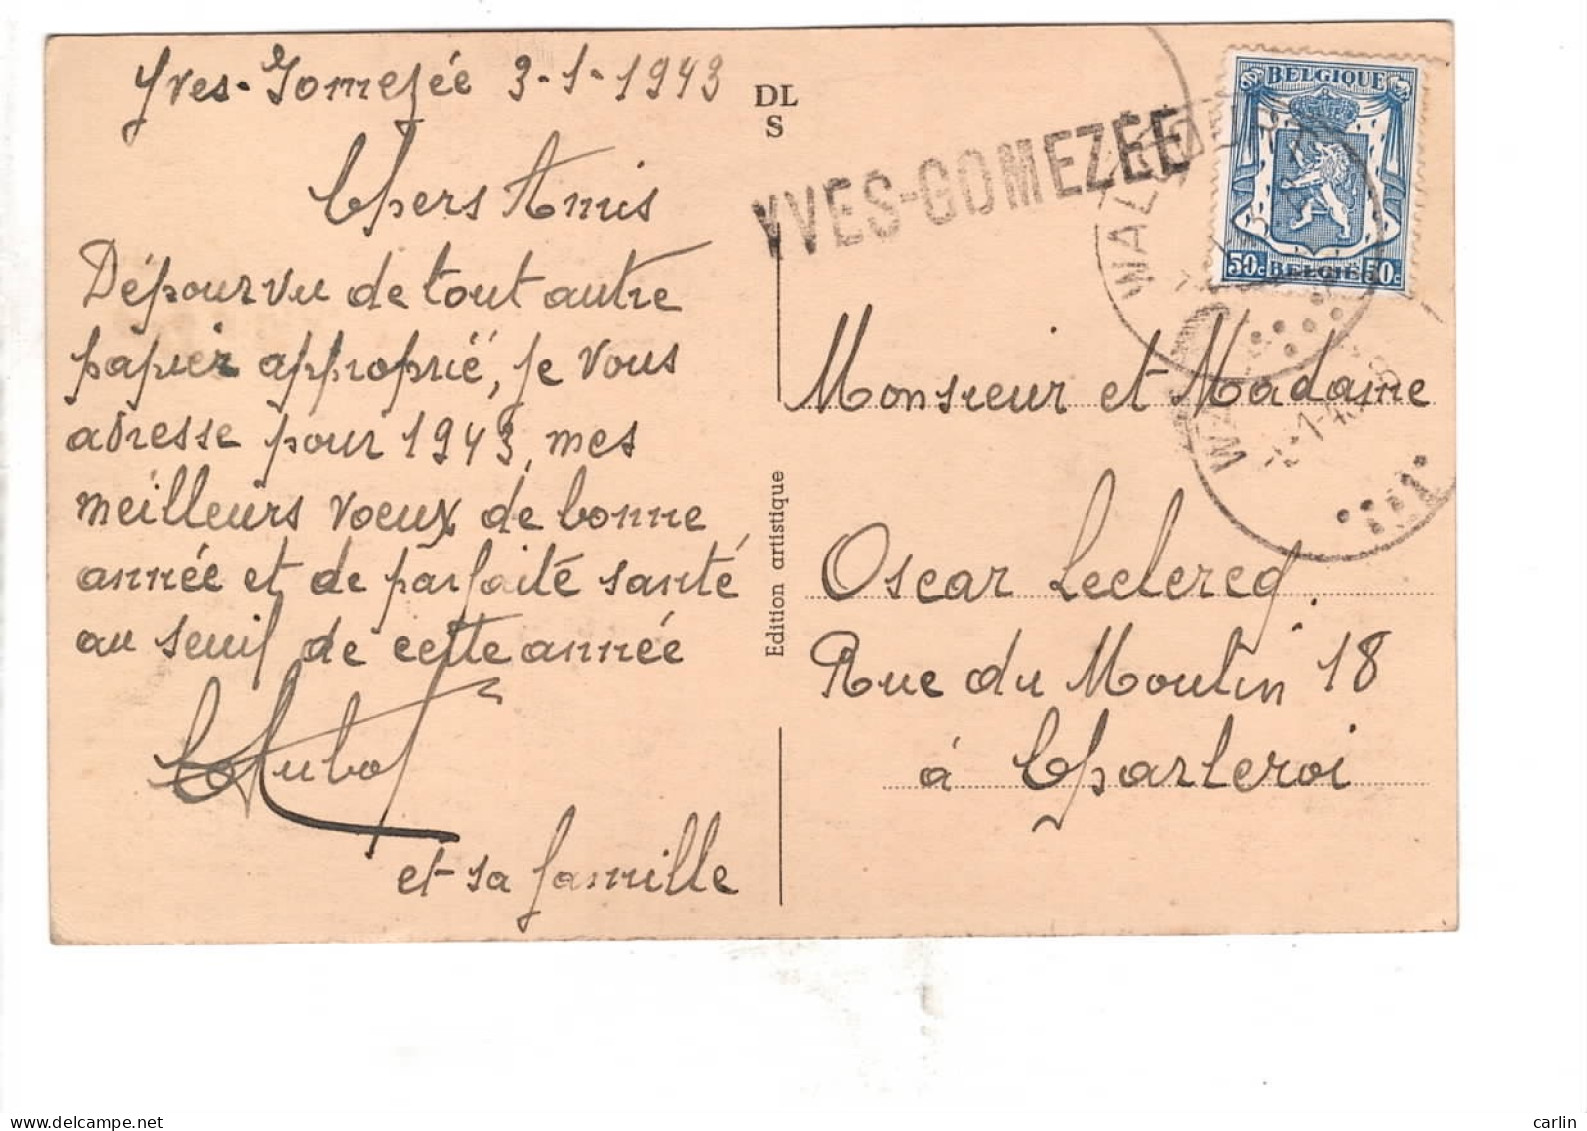 Yves-Gomezée 3-1-1943
Chers Amis
Dépourvu de tout autre
papier approprié, je vous
adresse pour 1943, mes
meilleurs voeux de bonne
année et de parfaite santé,
au seuil de cette année
et sa famille
DL
S
Edition artistique
YVES-GOMEZÉE
BELGIQUE
50c BELGIË 50c
Monsieur et Madame
Oscar Leclercq.
Rue du Moulin 18
à Charleroi
www.delcampe.net
carlin